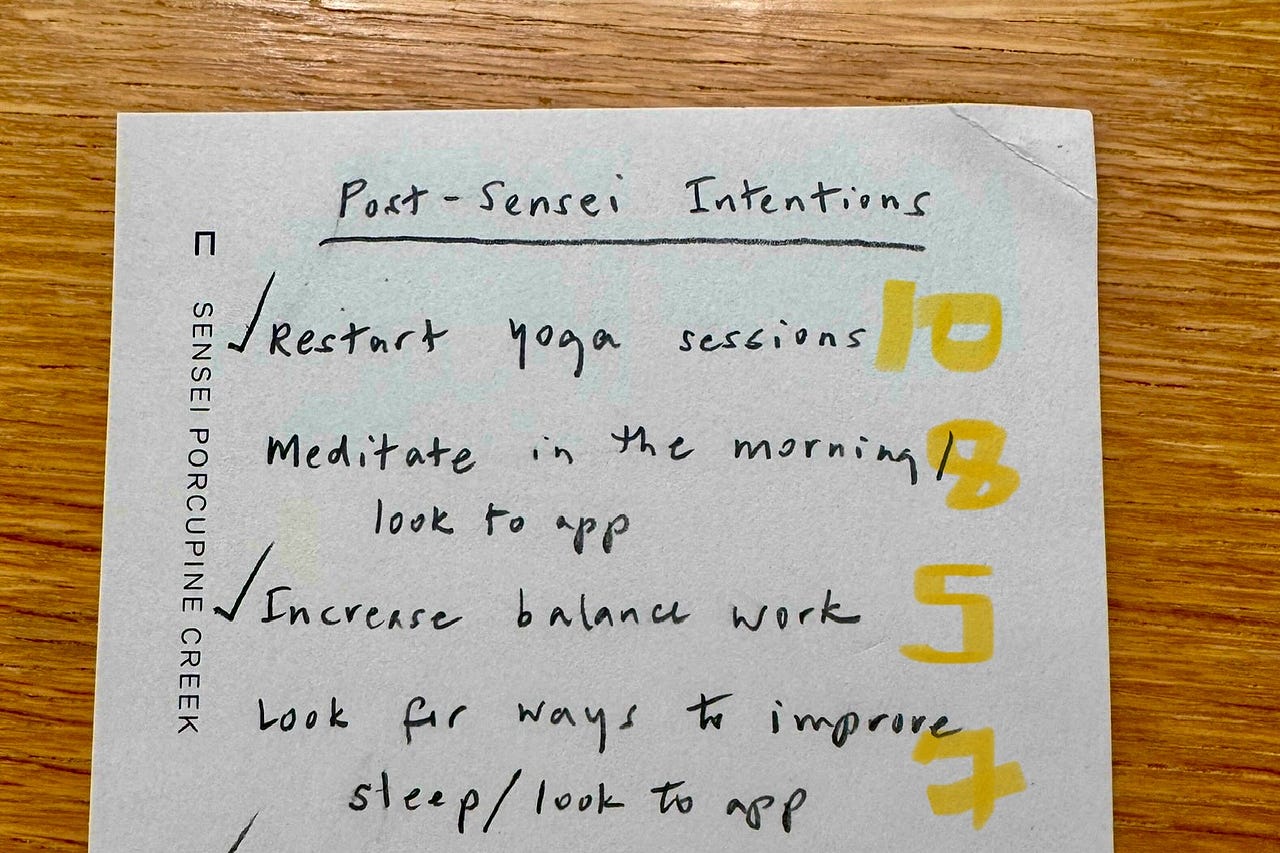 Post-Sensei Intentions
SENSEI PORCUPINE CREEK
✓Restart yoga sessions 10
Meditate in the morning/ 8
look to app
✓Increase balance work 5
Look for ways to improve 7
sleep/look to app